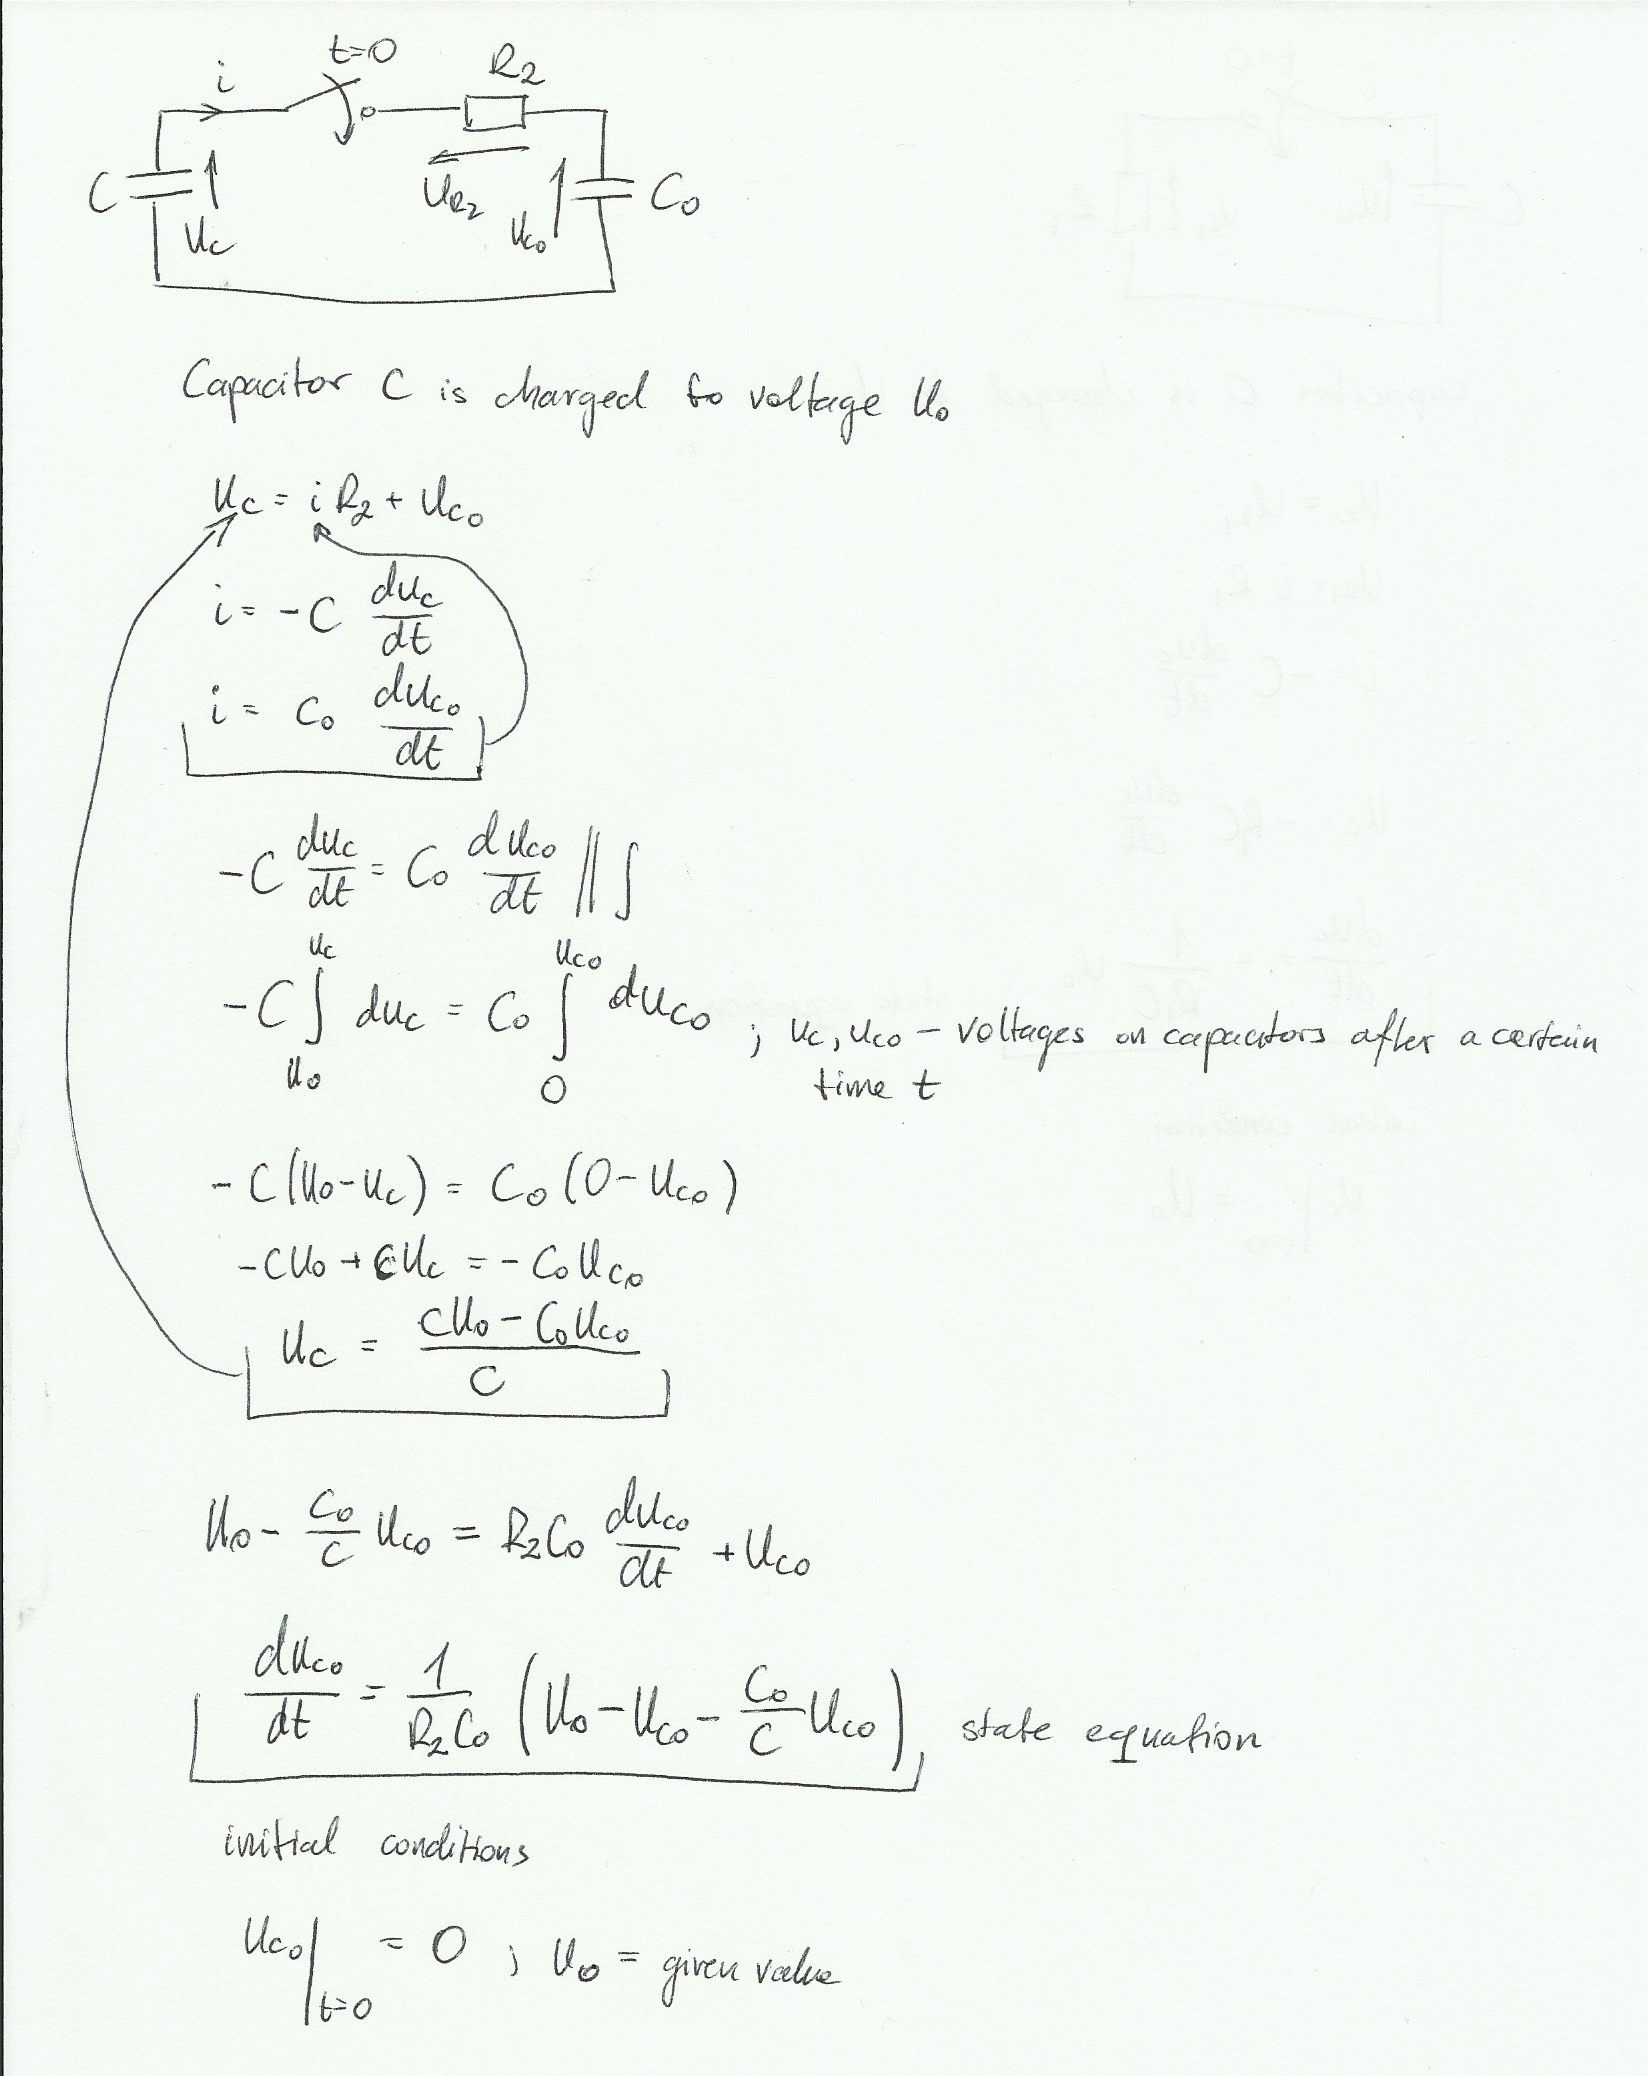 t=0
i
R2
C
uc
uR2
uc0
C0
Capacitor C is charged to voltage U0
uc = i R2 + uc0
i = -C duc/dt
i = C0 duc0/dt
-C duc/dt = C0 duc0/dt || ∫
-C ∫_{U0}^{uc} duc = C0 ∫_{0}^{uc0} duc0 ; uc, uc0 - voltages on capacitors after a certain
time t
-C(U0-uc) = C0(0-uc0)
-CU0 + Cuc = -C0uc0
uc = (CU0 - C0uc0)/C
U0 - C0/C uc0 = R2C0 duc0/dt + uc0
duc0/dt = 1/(R2C0) (U0 - uc0 - C0/C uc0), state equation
initial conditions
uc0|t=0 = 0 ; U0 = given value